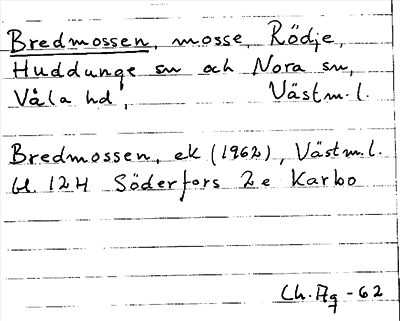 Bredmossen, mosse, Rödje,
Huddunge sn och Nora sn,
Våla hd, Västm. l.
Bredmossen, ek (1962), Västm. l.
bl. 12H Söderfors 2e Karbo
Ch. Ag -62